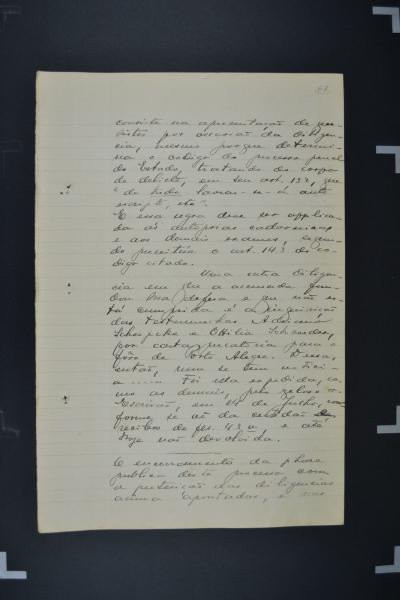 consiste na apresentação de que-
sitos por occasião da diligen-
cia, mesmo porque determi-
na o codigo do processo penal
do Estado, tratando do corpo
de delicto, em seu art. 132, que
"de tudo lavrar-se-á auto
escripto, etc".
E essa regra deve ser applica-
da ás autopsias cadavericas
e aos demais exames, segun-
do preceitúa o art. 143 do co-
digo citado.
Uma outra diligen-
cia em que a accusada fun-
dou sua defeza e que não es-
tá cumprida é a inquirição
das testemunhas Adriano
e Ottilia
por carta precatoria para o
fôro de Porto Alegre. Dessa,
então, nem se tem notici-
a ..... Foi ella expedida, co-
mo as demais, pelo zeloso
Escrivão, em de Julho, con-
forme se vê da certidão de
recibos de fls. 43 v, e até
hoje não devolvida.
O encerramento da phase
publica deste processo com
a preterição das diligencias
acima apontadas, é